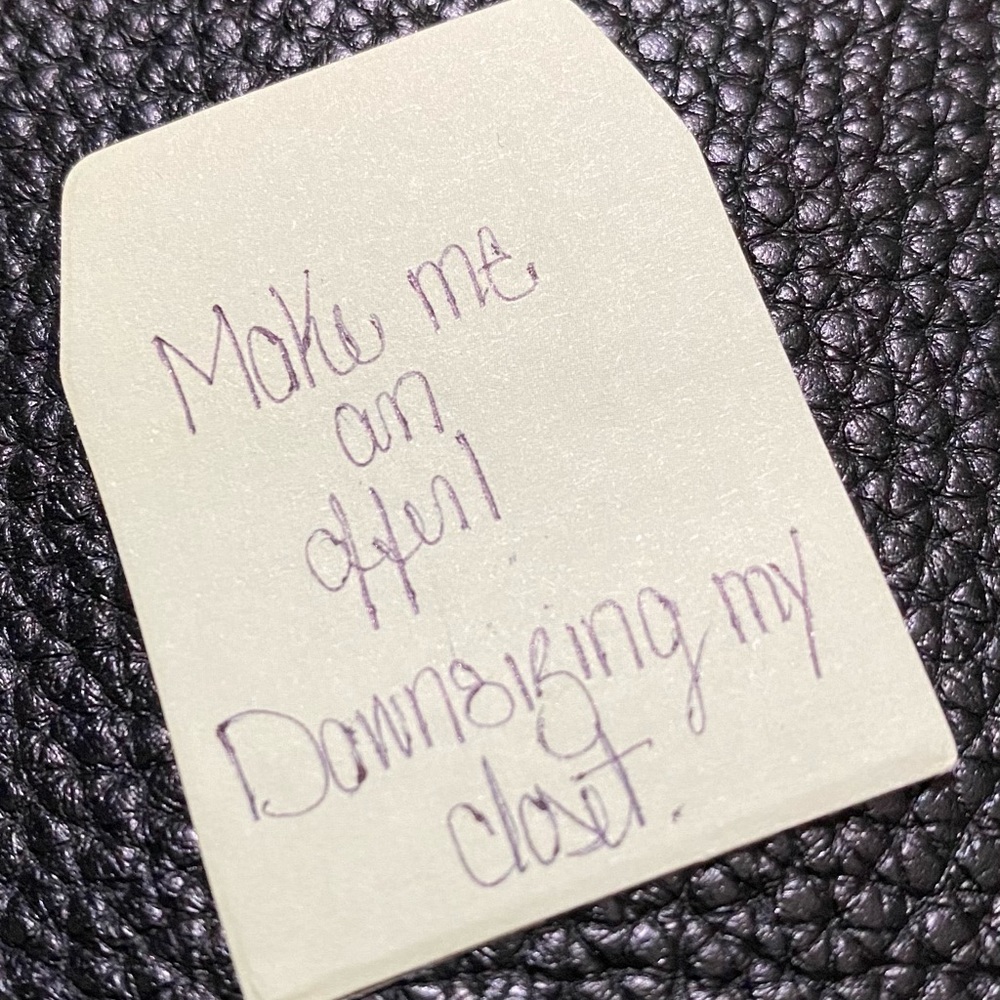 Make me
an
offer!
Downsizing my
closet.